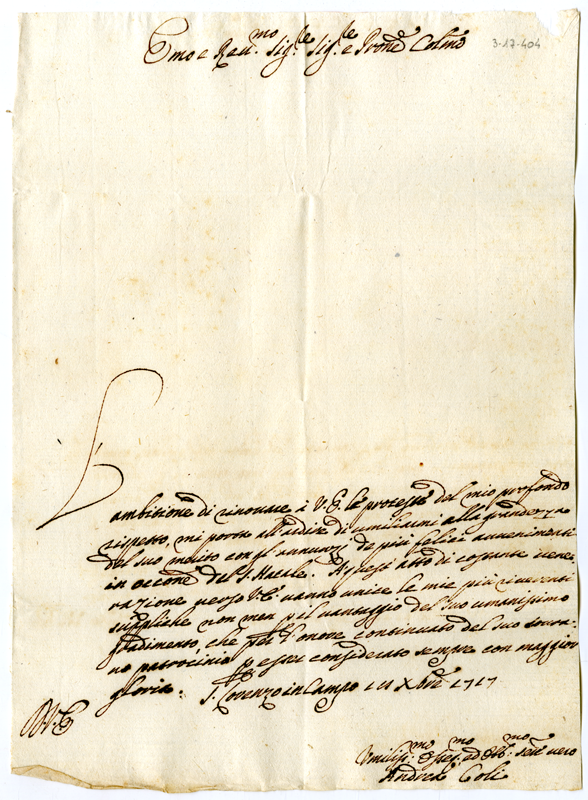 Emo e Reu.mo Sig.re Sig.re e Prone Colmo
3-17-404
L'ambitione di rinouare à V. E. le proteste del mio profondo
rispetto, mi porta all'ardire di umiliarmi alla grandezza
del suo merito con gl'annunzj de piu felici auuenimenti
in occone del S. Natale. A questi atti di costante uene-
razione uerso V. E. uanno unite le mie più riuerenti
suppliche non men p il uantaggio del suo umanissimo
gradimento, che per l'onore continuato del suo soura-
no patrocinio p esser considerato sempre con maggior
gloria. S. Lorenzo in Campo Xbre 1717
D. V. E.
Umiliss.mo ed obb.mo seru uero
Andrea Coli